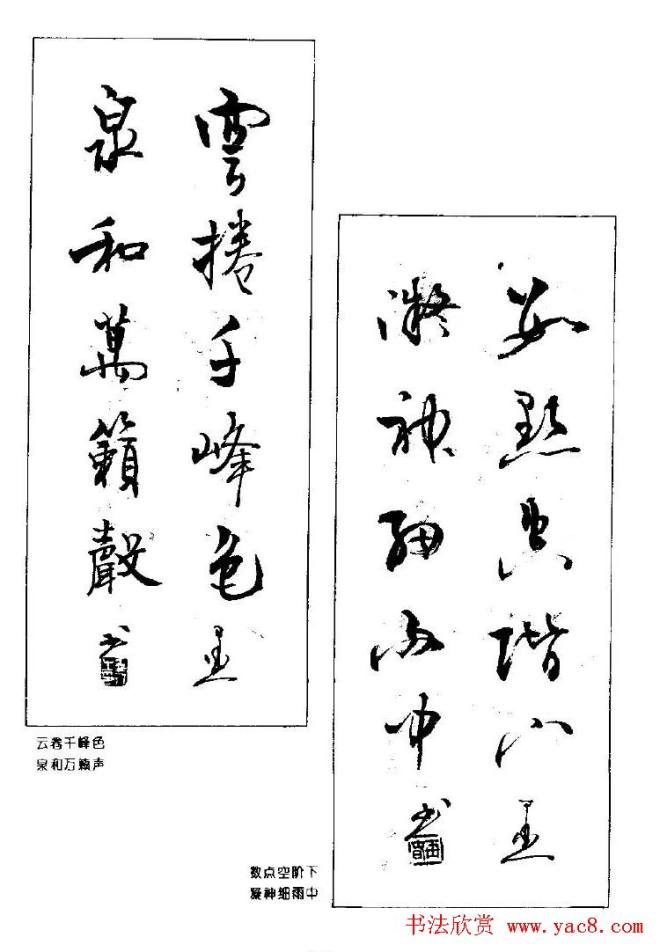 雲捲千峰色
泉和萬籟聲
云卷千峰色
泉和万籁声
數點空階下
凝神細雨中
数点空阶下
凝神细雨中
书法欣赏 www.yac8.com